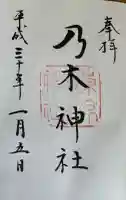 奉拝
乃木神社
平成三十年一月五日